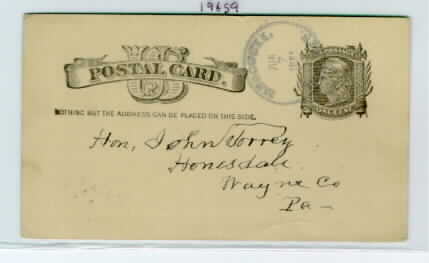 19659
U S
POSTAL CARD.
NOTHING BUT THE ADDRESS CAN BE PLACED ON THIS SIDE.
Hon, John Torrey
Honesdale
Wayne Co
Pa -